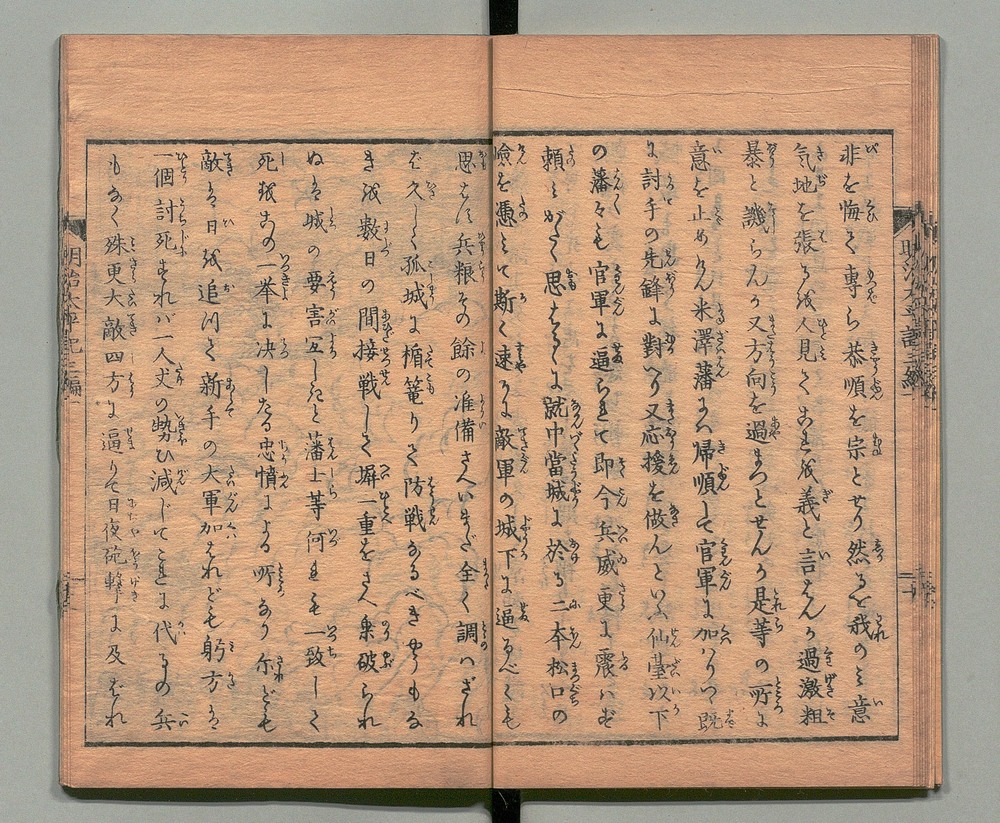 非を悔て専ら恭順を宗とせり然るを我のミ意
気地を張るを人見てこれを義と言はんか過激粗
暴と譏らんか又方向を過まつとせんか是等の所に
意を止めけん米澤藩ハ帰順して官軍に加ハりつ既
に討手の先鋒に對へり又応援を做んといふ仙臺以下
の藩々も官軍に逼られて即今兵威更に震ハず
頼ミがたく思ほしに就中當城に於る二本松口の
險を憑ミて斯く速かに敵軍の城下に逼るべくも
思はず兵粮その餘の准備さへいまだ全く調ハざれ
ば久しく孤城に楯篭りて防戦なるべきやうもな
きを數日の間接戦して塀一重をさへ乗破られ
ぬは城の要害宜しきと藩士等何れも一致して
死を古の一挙に决したる忠情による所なり尓ども
敵は日を追ひて新手の大軍加はれども躬方は
一個討死すれバ一人丈の勢ひ減じてこれに代るの兵
もなく殊更大敵四方に逼りて日夜砲撃に及ばれ
明治太平記三編